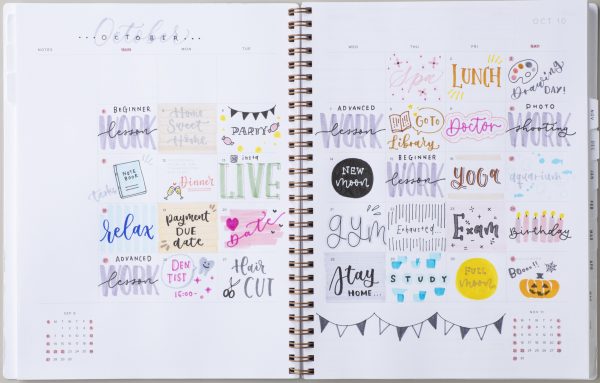 October
OCTOBER
NOTES
SUN
TUE
BEGINNER
WORK
lesson
Home
Sweet
Home
PARTY
NOTE
BOOK
Dinner
insta
LIVE
relax
payment
DUE
date
Date
ADVANCED
WORK
lesson
DEN
TIST
16:00~
Hair
CUT
SEP 9
OCT 10
WED
THU
FRI
SAT
Spa
LUNCH
Drawing
DAY!
ADVANCED
WORK
lesson
GOTO
Library
Doctor
PHOTO
WORK
shooting
NEW
moon
BEGINNER
WORK
lesson
YOGA
aquarium
GYM
Exhausted...
Exam
BIRTHDAY
Stay
HOME...
STUDY
Full
moon
Boooo!!
NOV 11